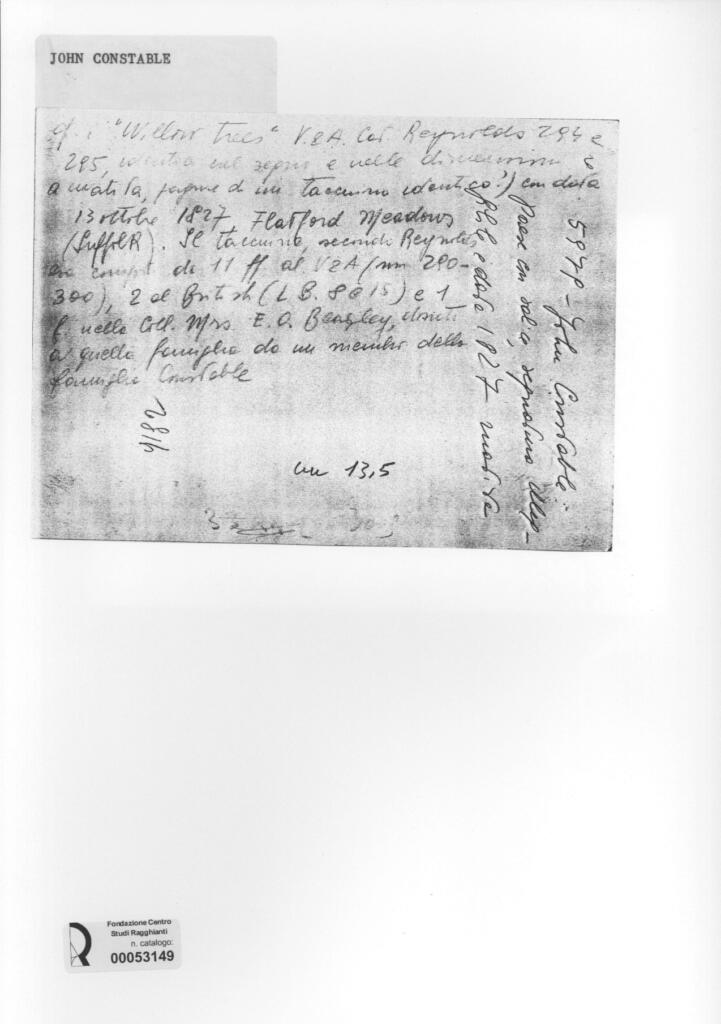 JOHN CONSTABLE
cf. i "Willow trees" V&A. Cat. Reynolds 294 e
295, identica nel segno e nelle dimensioni
a matita, pagine di un taccuino identico!) con data
13 ottobre 1827 Flatford Meadows
(Suffolk). Il taccuino, secondo Reynolds
da 11 ff al V&A (nn 290-
300), 2 al British (L.B. 8 e 15) e 1
f. nella Coll. Mrs. E. O. Beazley,
a quella famiglia da un membro della
famiglia Constable
mm 13,5
597P - John Constable
Paes con salici, segnatura
e data 1827 matita
Fondazione Centro
Studi Ragghianti
n. catalogo:
00053149